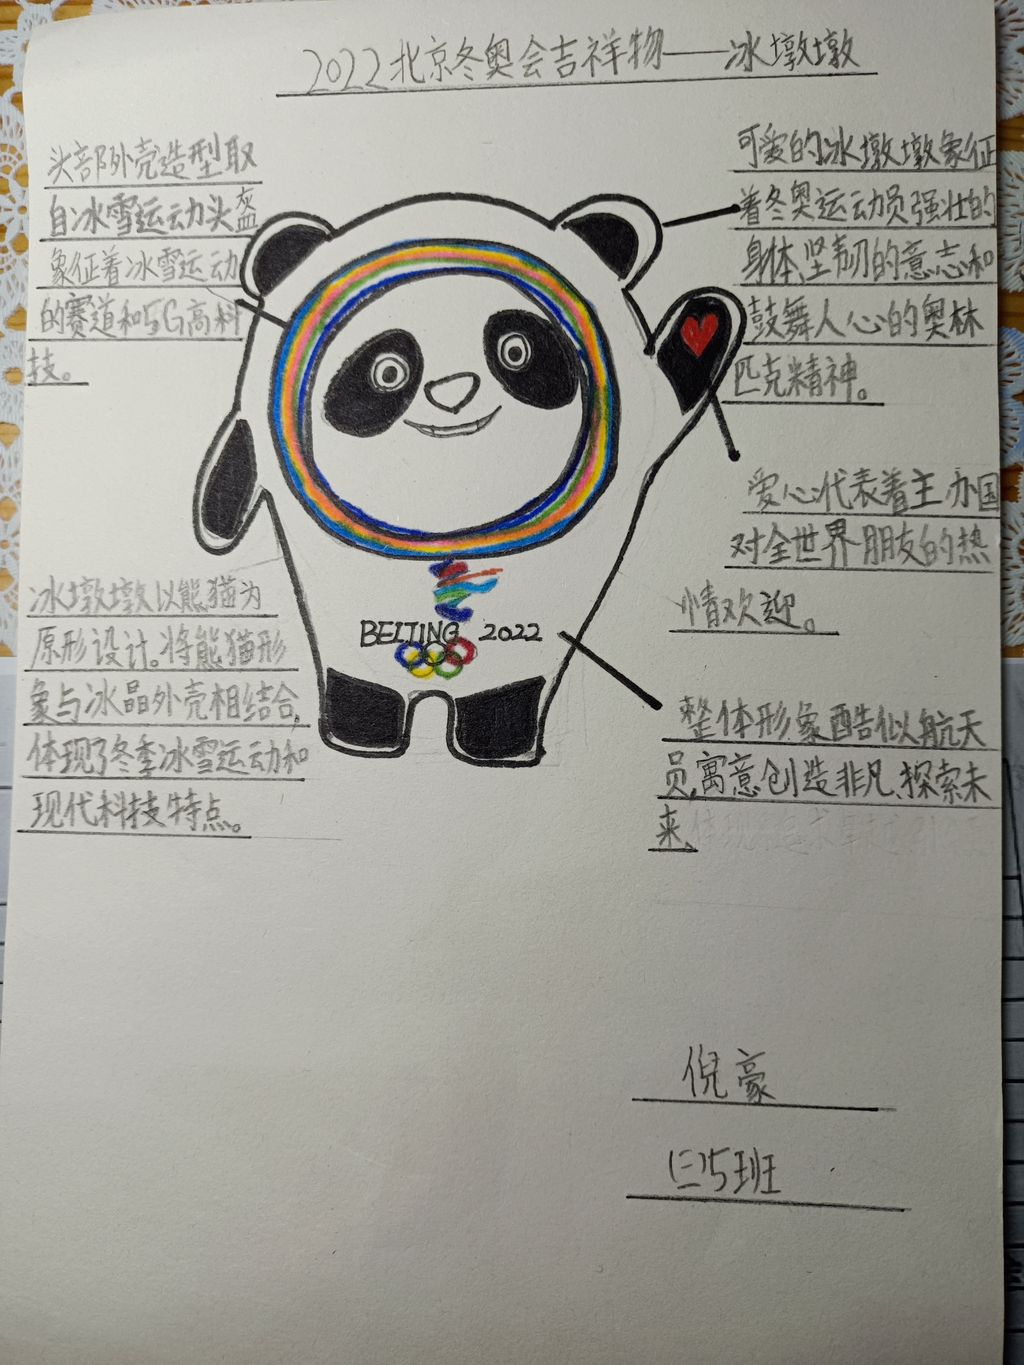 2022北京冬奥会吉祥物——冰墩墩
头部外壳造型取
自冰雪运动头盔
象征着冰雪运动
的赛道和5G高科
技。
可爱的冰墩墩象征
着冬奥运动员强壮的
身体、坚韧的意志和
鼓舞人心的奥林
匹克精神。
爱心代表着主办国
对全世界朋友的热
情欢迎。
冰墩墩以熊猫为
原形设计。将熊猫形
象与冰晶外壳相结合,
体现了冬季冰雪运动和
现代科技特点。
BEIJING 2022
整体形象酷似航天
员,寓意创造非凡、探索未
来,体现追求卓越
倪豪
(三)5班